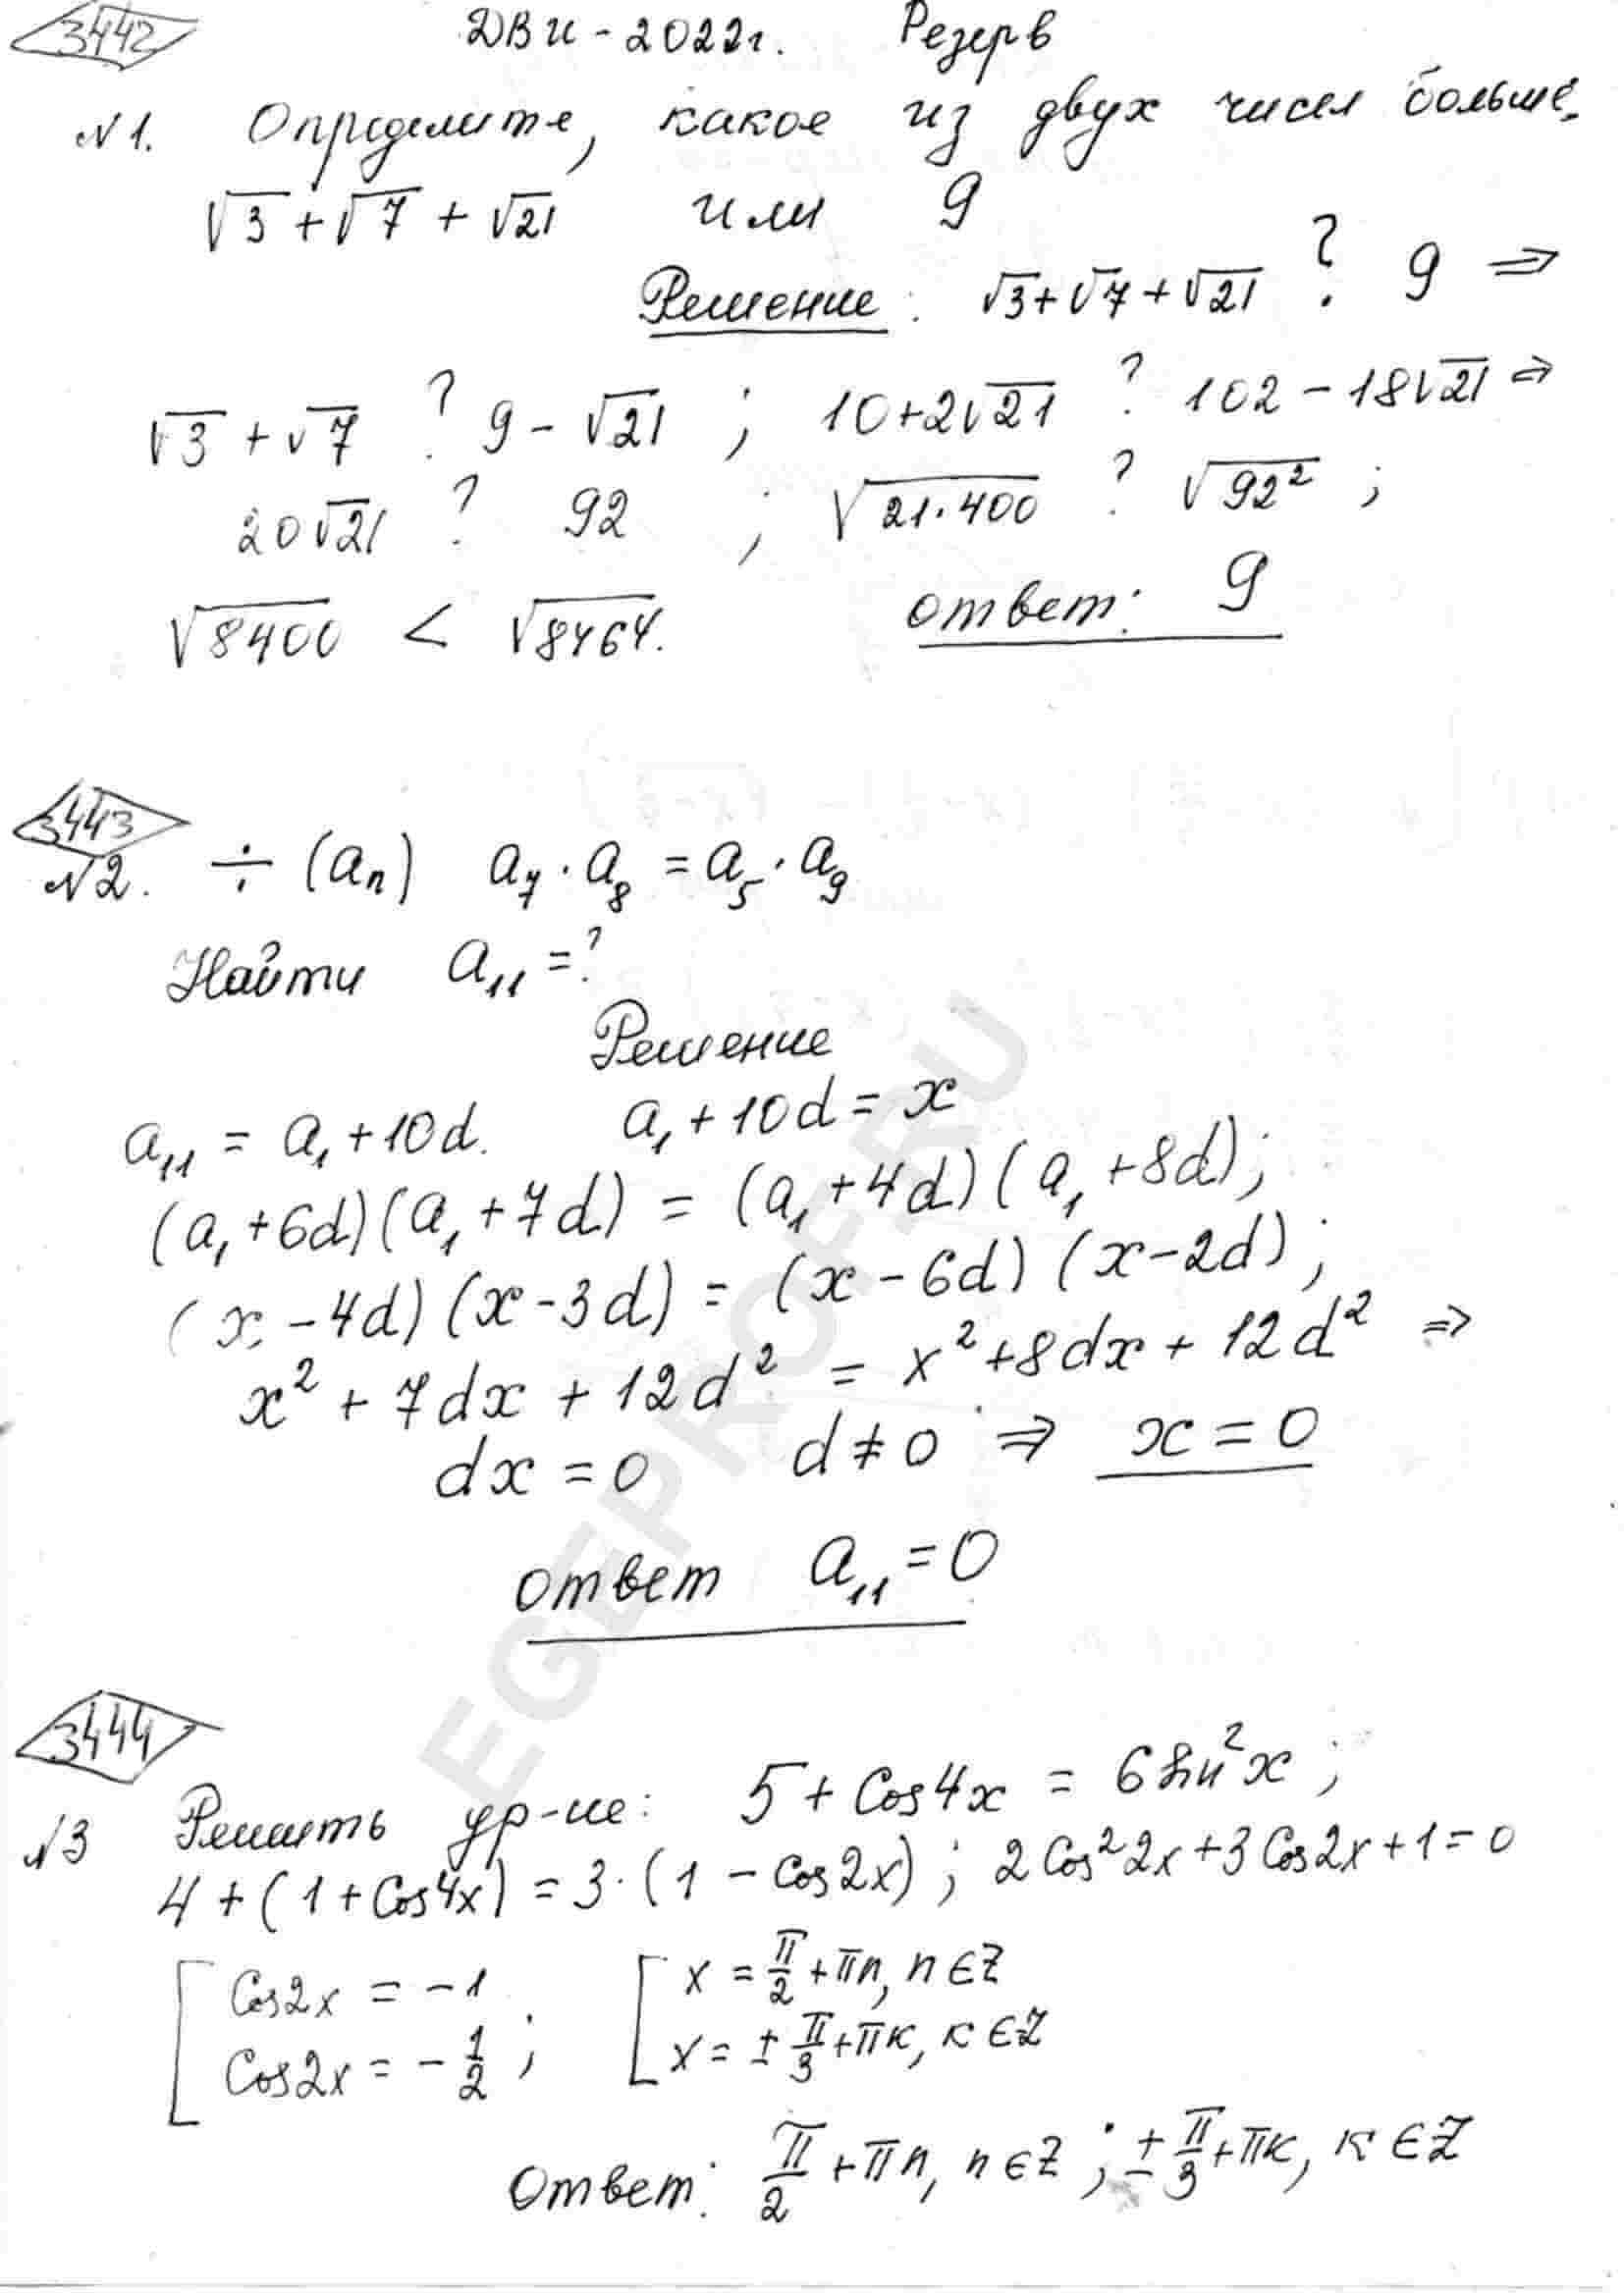 3442 ДВИ-2022г. Резерв
№1. Определите, какое из двух чисел больше.
√3 + √7 + √21 или 9
Решение: √3 + √7 + √21 ? 9 ⇒
√3 + √7 ? 9 - √21 ; 10 + 2√21 ? 102 - 18√21 ⇒
20√21 ? 92 ; √21·400 ? √92² ;
√8400 < √8464. ответ: 9
3443
№2. ÷ (aₙ) a₇ · a₈ = a₅ · a₉
Найти a₁₁ = ?
Решение
a₁₁ = a₁ + 10d. a₁ + 10d = x
(a₁ + 6d)(a₁ + 7d) = (a₁ + 4d)(a₁ + 8d);
(x - 4d)(x - 3d) = (x - 6d)(x - 2d);
x² + 7dx + 12d² = x² + 8dx + 12d² ⇒
dx = 0 d ≠ 0 ⇒ x = 0
ответ a₁₁ = 0
3444
№3 Решить ур-ие: 5 + Cos4x = 6sin²x ;
4 + (1 + Cos4x) = 3·(1 - Cos2x) ; 2Cos²2x + 3Cos2x + 1 = 0
[ Cos2x = -1 [ x = π/2 + πn, n ∈ Z
Cos2x = -1/2 ; x = ± π/3 + πк, к ∈ Z
Ответ: π/2 + πn, n ∈ Z ; ± π/3 + πк, к ∈ Z
EGEPROF.RU